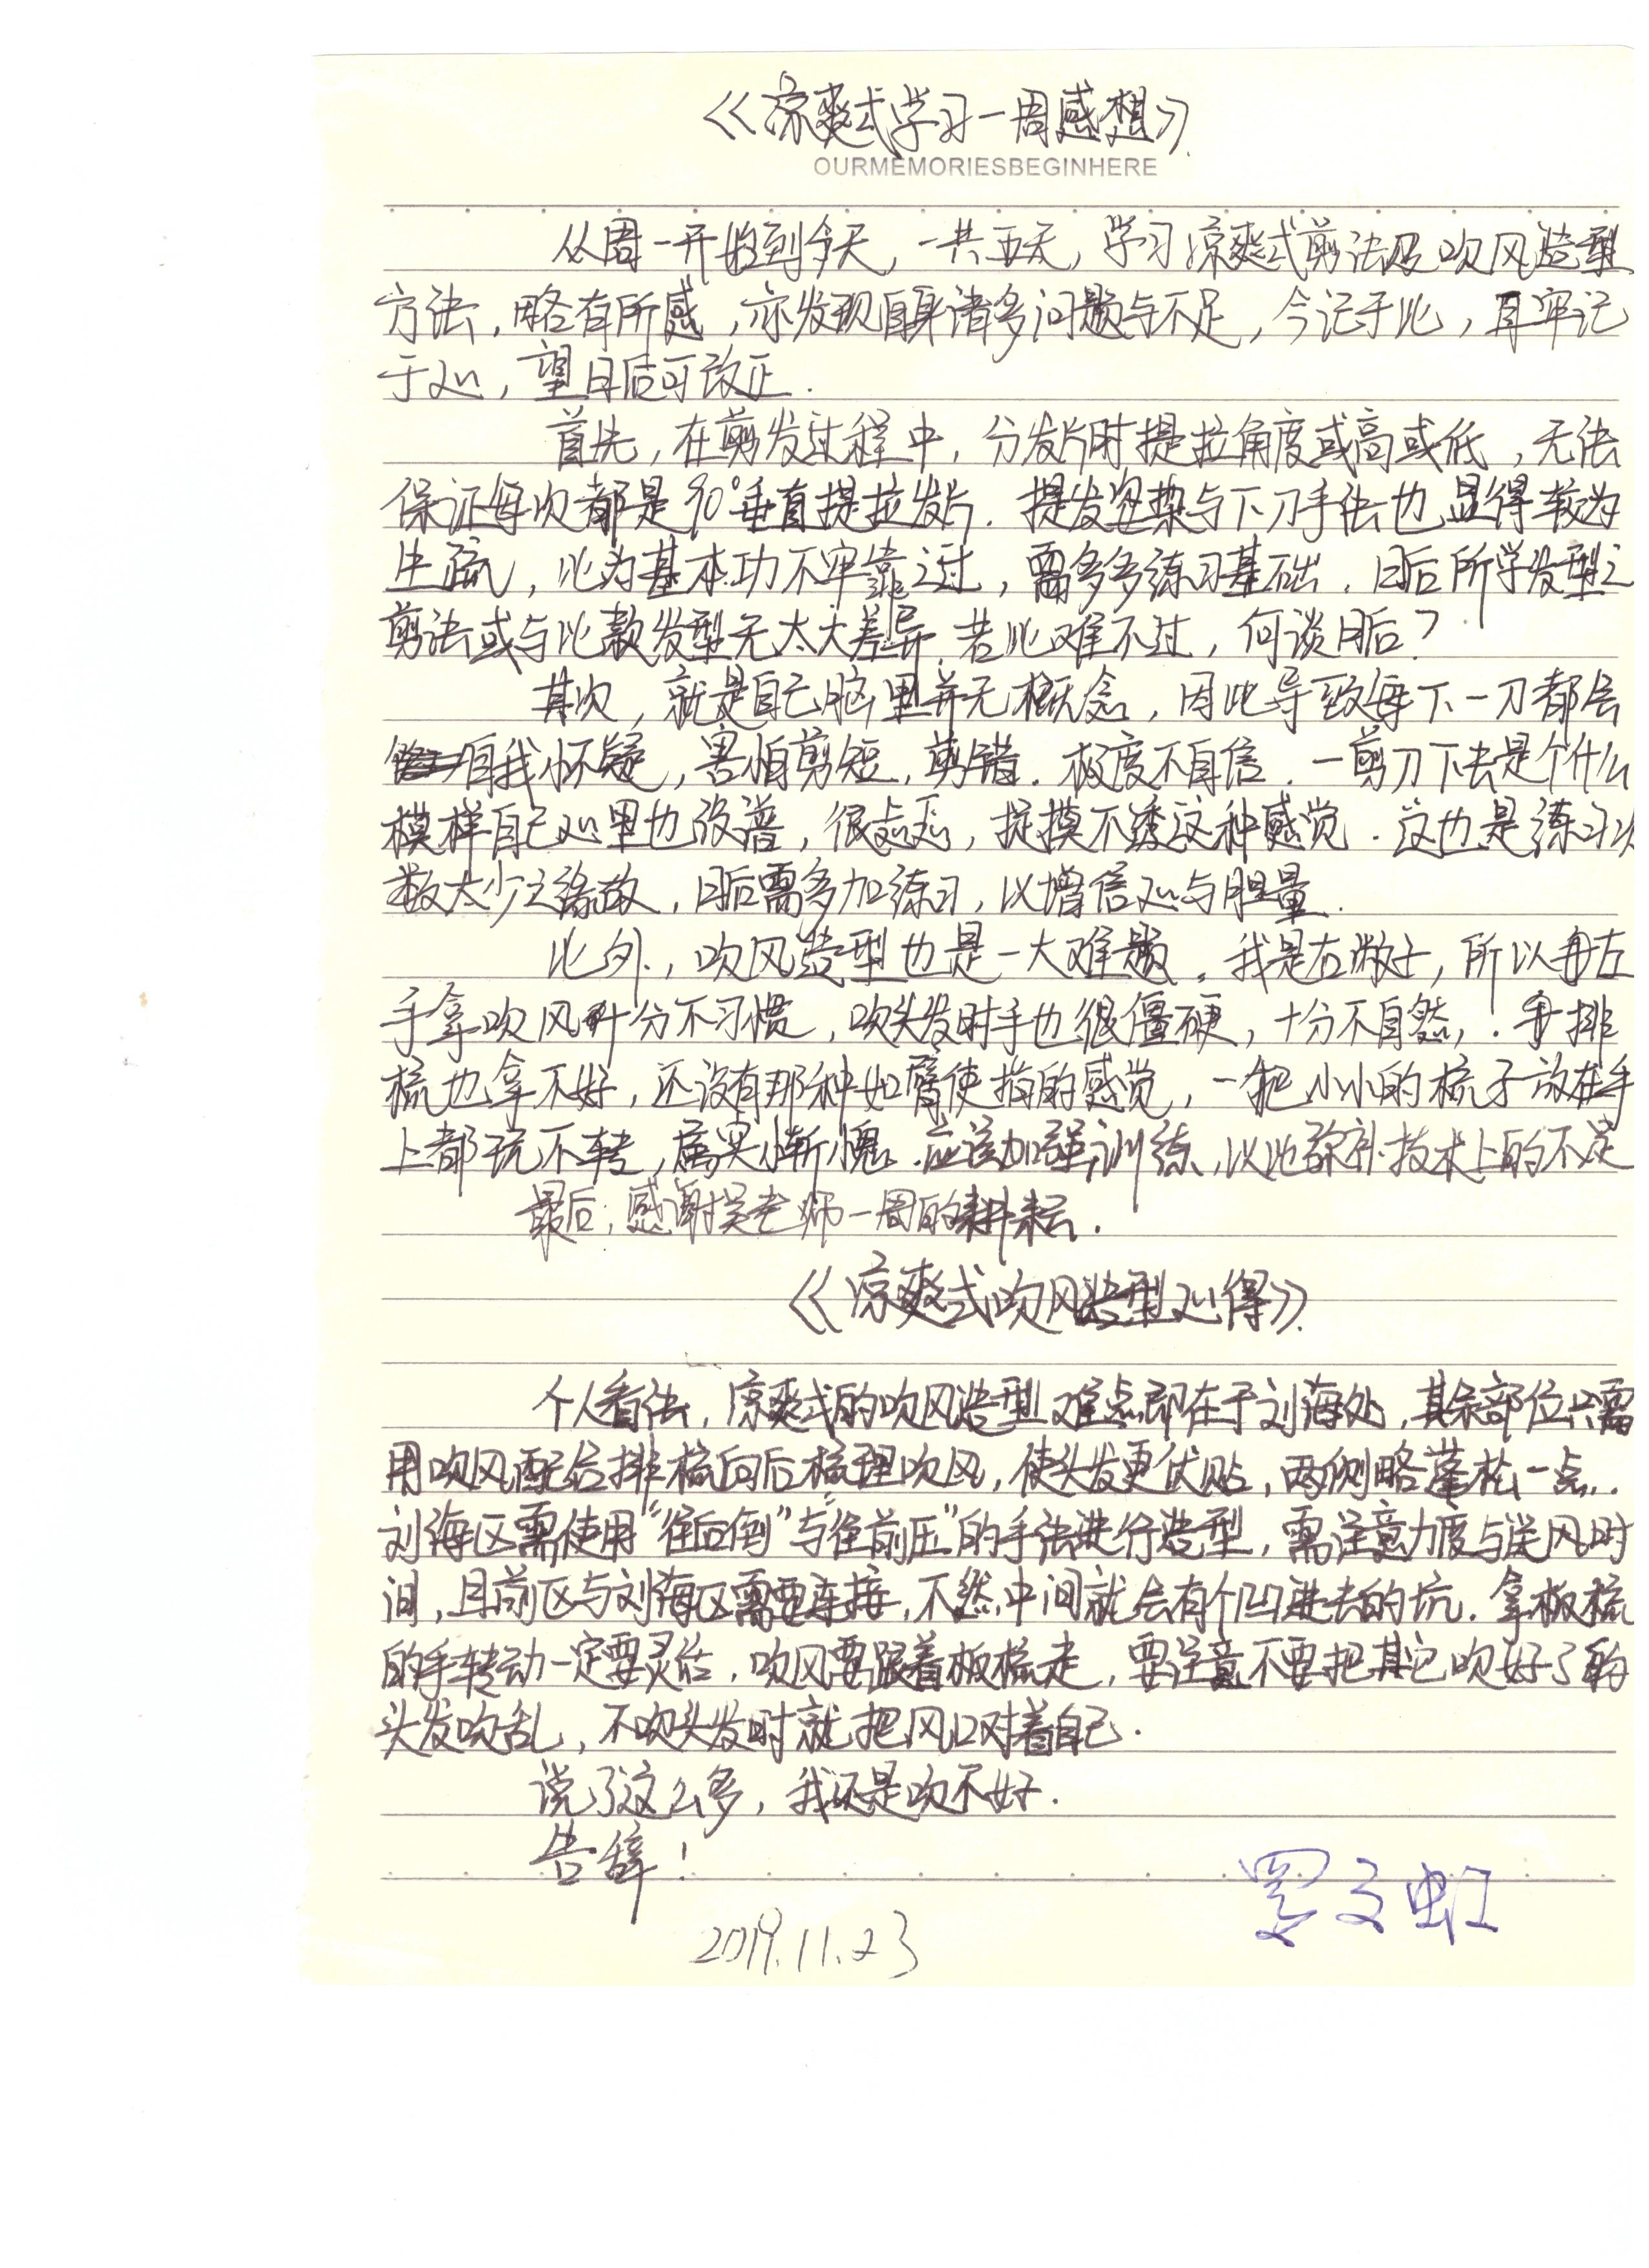 《凉爽式学习一周感想》.
OURMEMORIESBEGINHERE
从周一开始到今天，一共五天，学习凉爽式剪法及吹风造型
方法，略有所感，亦发现自身诸多问题与不足，今记于此，且牢记
于心，望日后可改正.
首先，在剪发过程中，分发片时提拉角度或高或低，无法
保证每次都是90°垂直提拉发片.提发与下刀手法也显得较为
生疏，此为基本功不牢靠之过，需多多练习基础.日后所学发型之
剪法或与此款发型无太大差异.若此难不过，何谈日后？
其次，就是自己脑里并无概念，因此导致每下一刀都会
自我怀疑，害怕剪短，剪错.极度不自信.一剪刀下去是个什么
模样自己心里也没谱，很忐忑，捉摸不透这种感觉.这也是练习次
数太少之缘故，日后需多加练习，以增信心与胆量.
此外，吹风造型也是一大难题.我是右撇子，所以用左
手拿吹风十分不习惯，吹头发时手也很僵硬，十分不自然，.手排
梳也拿不好，还没有那种如臂使指的感觉，一把小小的梳子放在手
上都玩不转，属实惭愧.应该加强训练，以此弥补技术上的不足
最后，感谢吴老师一周的耕耘.
《凉爽式吹风造型心得》.
个人看法，凉爽式的吹风造型难点即在于刘海处，其余部位只需
用吹风配合排梳向后梳理吹风，使头发更伏贴，两侧略蓬松一点.
刘海区需使用“往后倒”与“往前压”的手法进行造型，需注意力度与送风时
间，且前区与刘海区需要连接，不然中间就会有个凹进去的坑.拿板梳
的手转动一定要灵活，吹风要跟着板梳走，要注意不要把其它吹好了的
头发吹乱，不吹头发时就把风口对着自己.
说了这么多，我还是吹不好.
告辞！
罗文虹
2019.11.23